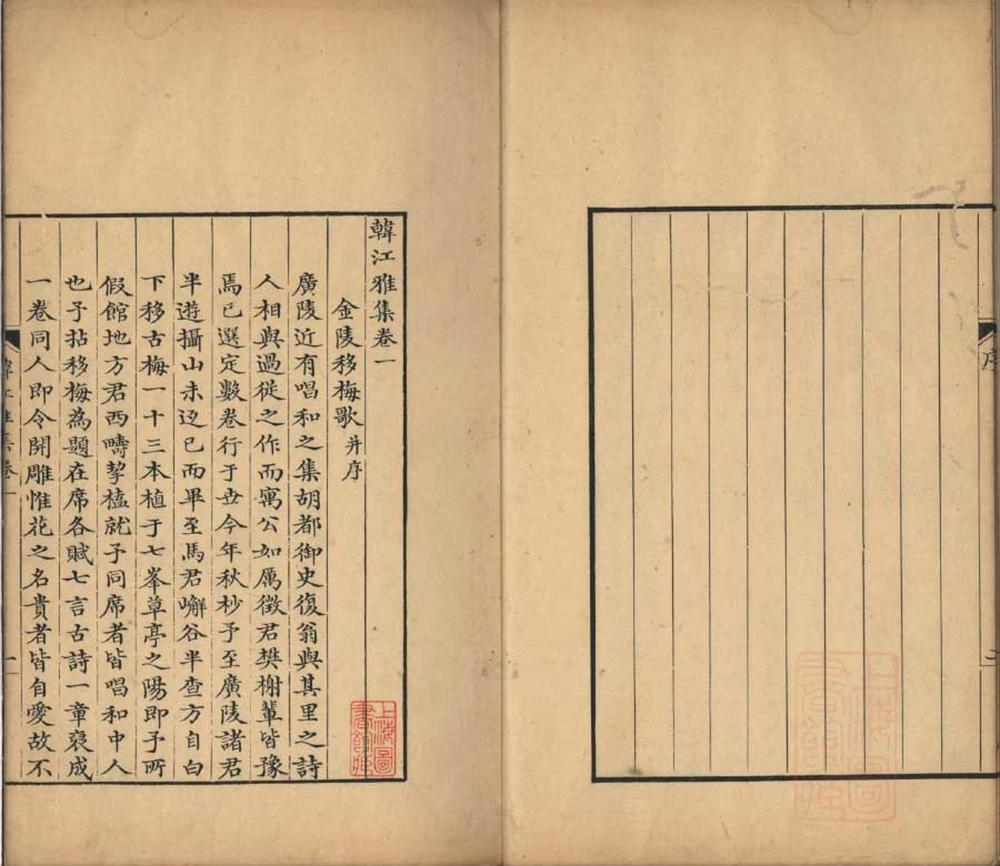 序
二
韓江雅集卷一
金陵移梅歌 并序
廣陵近有唱和之集胡都御史復翁與其里之詩
人相與過從之作而寓公如厲徵君樊榭輩皆豫
焉已選定數卷行于世今年秋杪予至廣陵諸君
半遊攝山未返已而畢至馬君嶰谷半查方自白
下移古梅一十三本植于七峯草亭之陽即予所
假館地方君西疇挈榼就予同席者皆唱和中人
也予拈移梅為題在席各賦七言古詩一章裒成
一卷同人即令開雕惟花之名貴者皆自愛故不
韓江雅集卷一
一
上海圖
書館藏